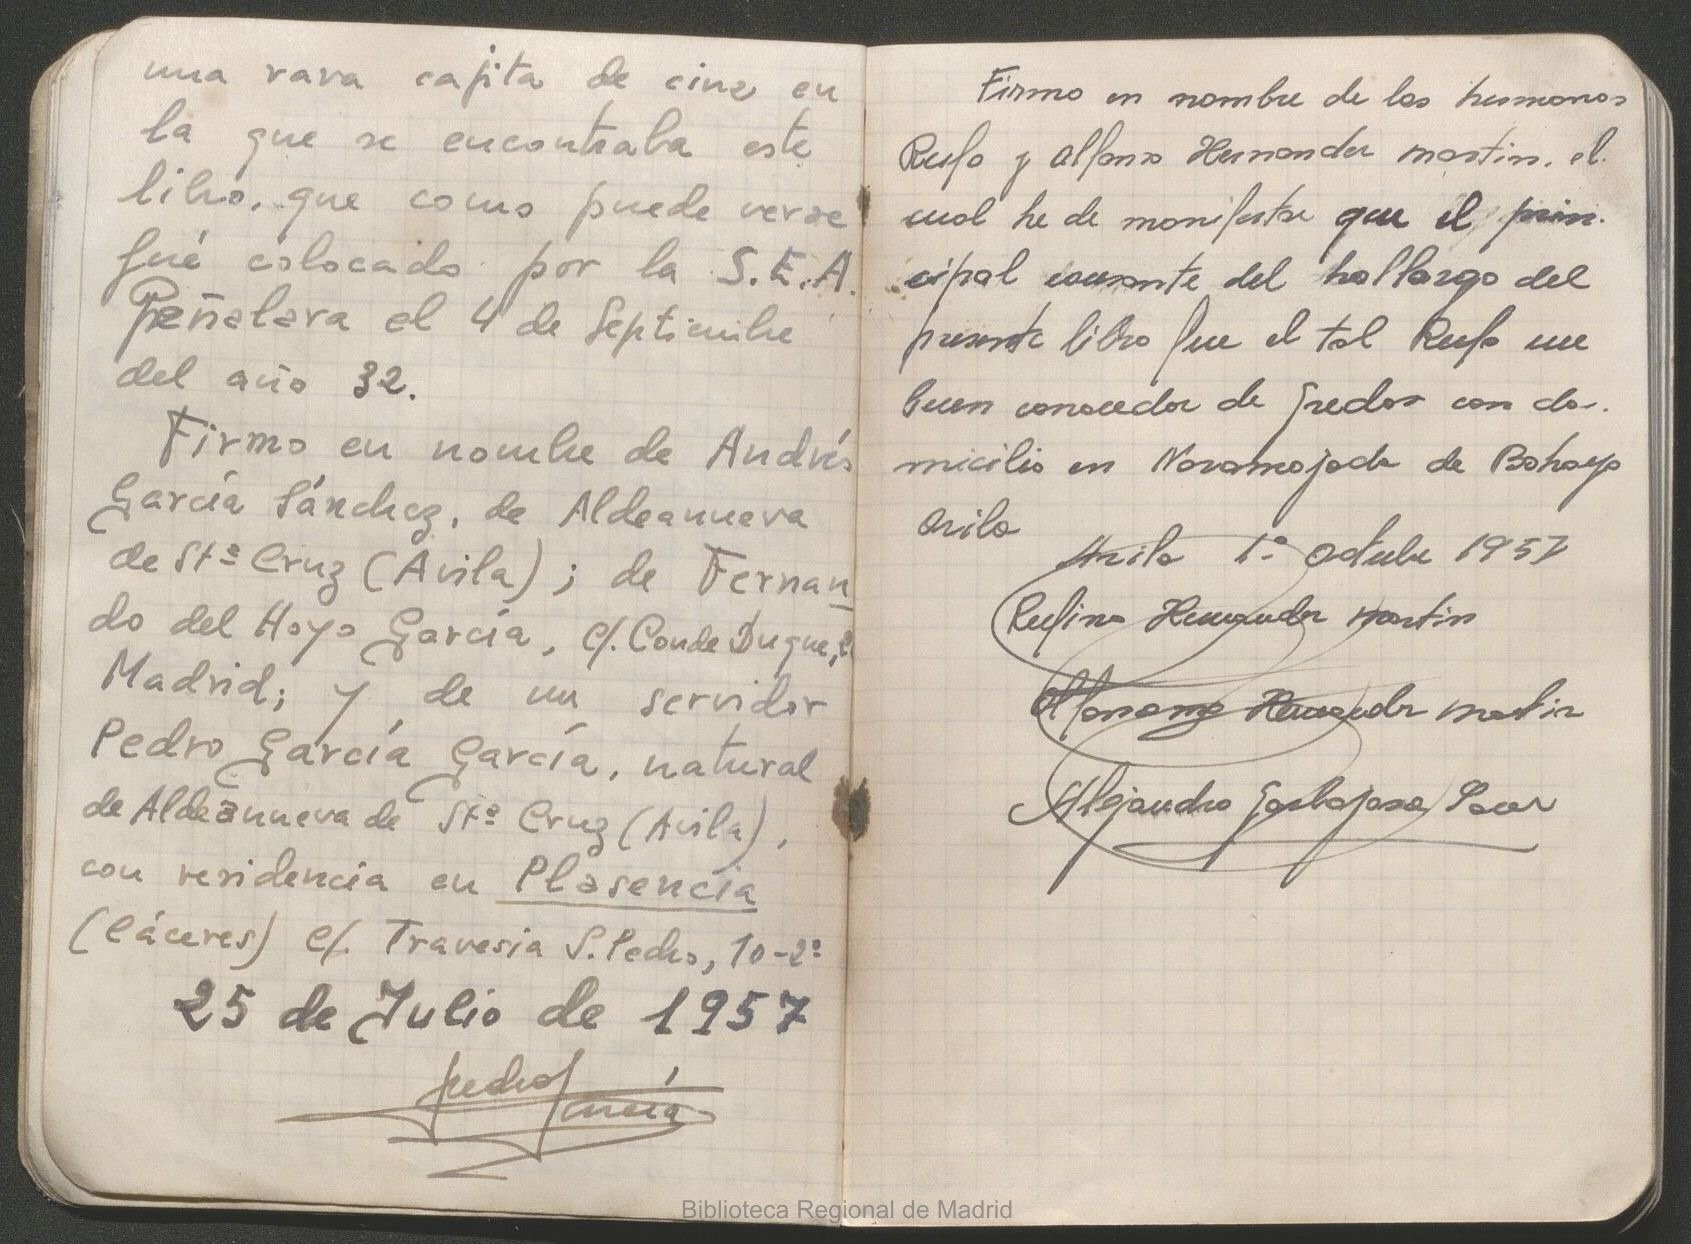 una rara cajita de cinz en
la que se encontraba este
libro, que como puede verse
fué colocado por la S.E.A.
Peñalara el 4 de Septiembre
del año 32.
Firmo en nombre de Andrés
García Sánchez, de Aldeanueva
de Stª Cruz (Avila); de Fernan
do del Hoyo García, c/. Conde Duque,
Madrid; y de un servidor
Pedro García García, natural
de Aldeanueva de Stª Cruz (Avila),
con residencia en Plasencia
(Cáceres) c/. Travesia S. Pedro, 10-2º
25 de Julio de 1957
Pedro García
Firmo en nombre de los hermanos
Rufo y Alfonso Hernandez martin. el
cual he de manifestar que el prin.
cipal causante del hallazgo del
presente libro fue el tal Rufo un
buen conocedor de Gredos con do.
micilio en Navamojada de Bohoyo
Avila
Avila 1º Octubre 1957
Rufino Hernandez martin
Hernandez martin
Alejandro
Biblioteca Regional de Madrid